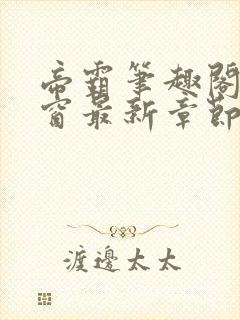 帝霸筆趣閣
窗最新章節
渡邊太太